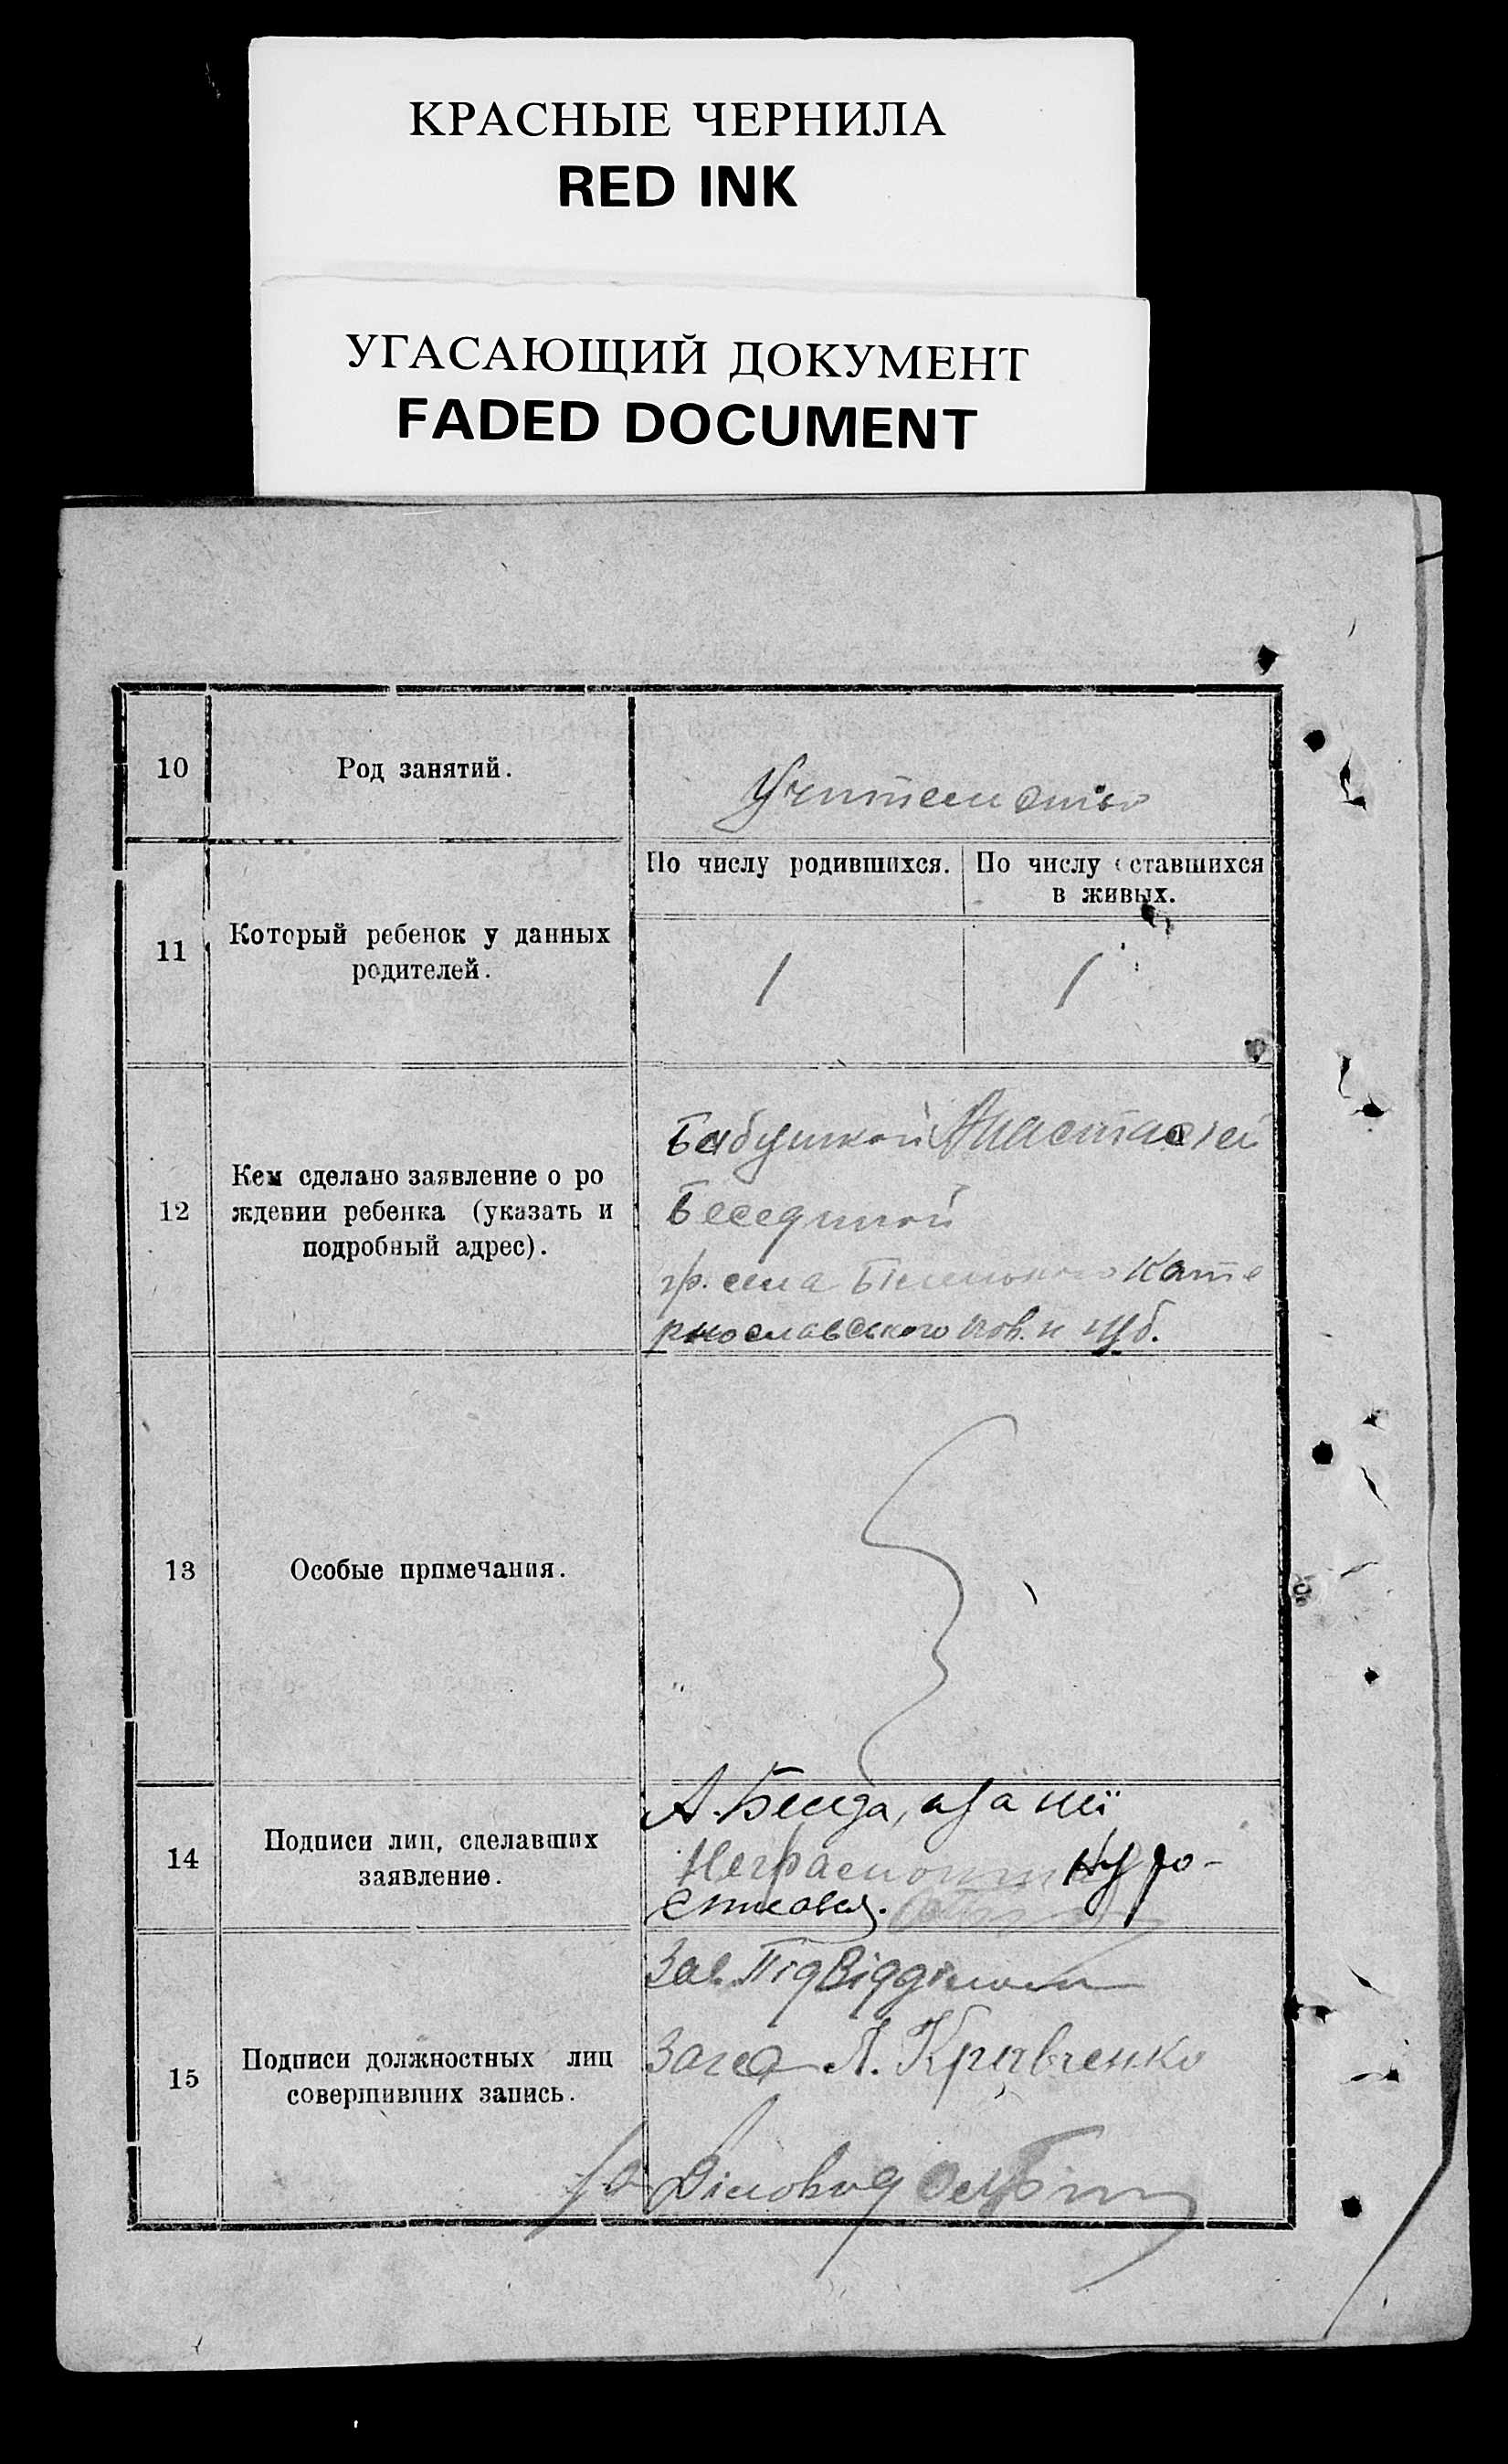 КРАСНЫЕ ЧЕРНИЛА
RED INK
УГАСАЮЩИЙ ДОКУМЕНТ
FADED DOCUMENT
10
Род занятий.
Учительство
11
Который ребенок у данных
родителей.
По числу родившихся.
По числу оставшихся
в живых.
1
1
12
Кем сделано заявление о ро
ждении ребенка (указать и
подробный адрес).
Бабушкой Анастасіей
Бесединой
гр. села Кате
ринославського пов. и губ.
13
Особые примечания.
14
Подписи лиц, сделавших
заявление.
А. а за неї
15
Подписи должностных лиц
совершивших запись.
Зав. Підвідділом
Загса Кривченко
Діловод